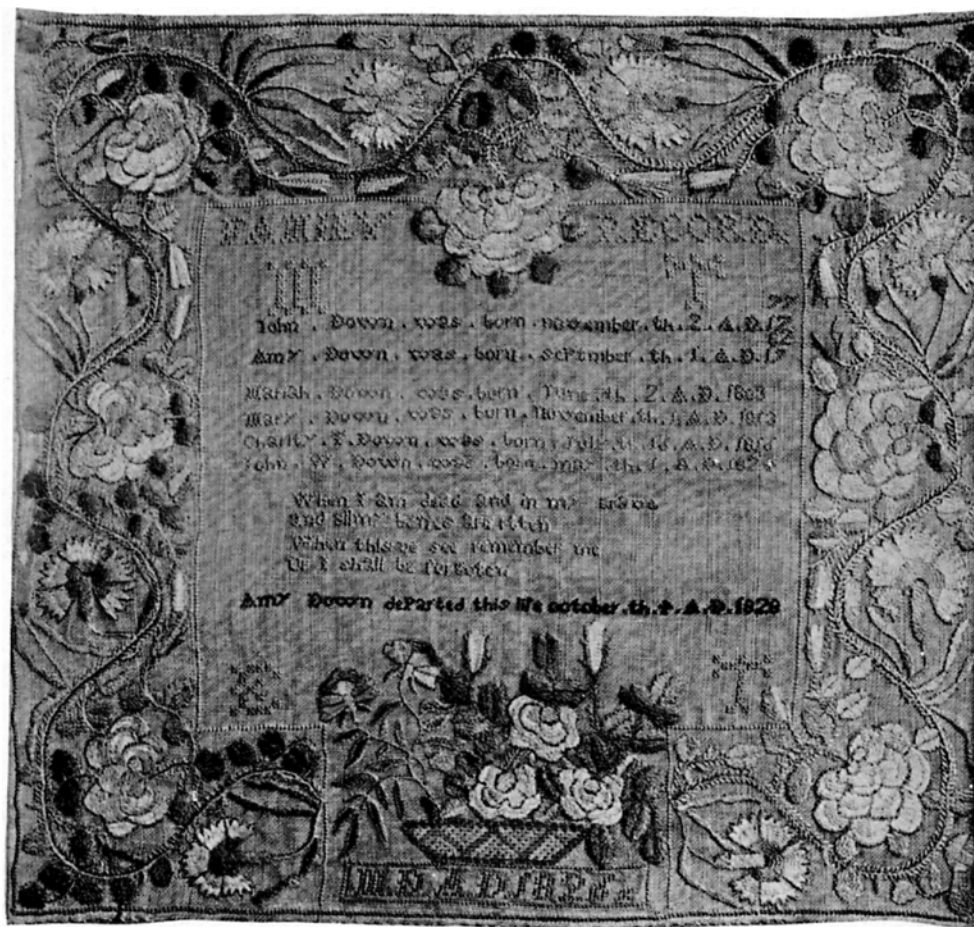 FAMILY RECORD
John . Down . was . born . november . th . 2 . A . D . 17
Amy . Down . was . born . septmber . th . 1 . A . D . 17
Mariah . Down . was . born . June . th . 2 . A . D . 1803
Mary . Down . was . born . November . th . A . D . 1813
Charity . T . Down . was . born . July . th . 16 . A . D .
John . W . Down . was . born . may . th . 1 . A . D .
When I am dead and in my grave
and all my bones are rotten
When this se see remember me
Or I shall be forgoten
Amy Down departed this life october . th . 4 . A . D . 1828
M . D . A . D